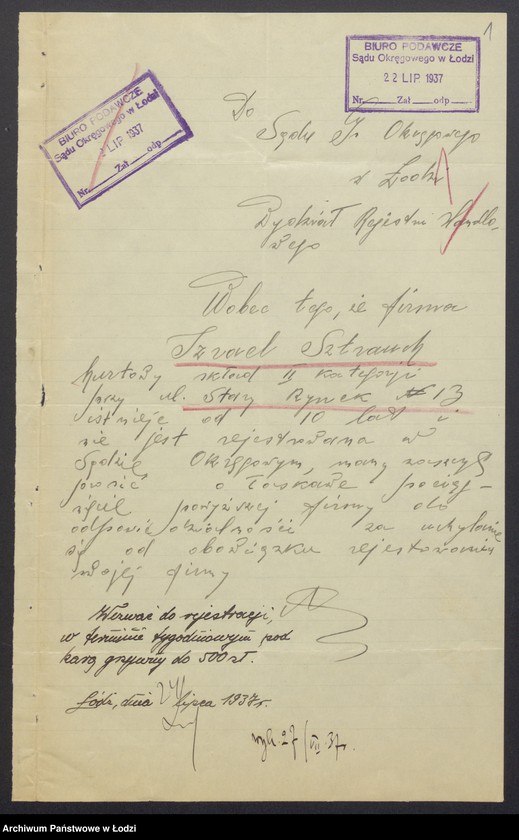 1
BIURO PODAWCZE
Sądu Okręgowego w Łodzi
22 LIP 1937
Nr. Zał odp.
BIURO PODAWCZE
Sądu Okręgowego w Łodzi
LIP 1937
Nr. Zał odp.
Do
Sądu Okręgowego
w Łodzi
Wydział Rejestru Handlo-
wego
Wobec tego, że firma
Izrael Sztrauch
hurtowy skład II kategorji
przy ul. Stary Rynek № 13
istnieje od 10 lat i
nie jest rejestrowana w
Sądzie Okręgowym, mamy zaszczyt
prosić o łaskawe pociąg-
nięcie powyższej firmy do
odpowiedzialności za uchylanie
się od obowiązku rejestrowania
swojej firmy
Wezwać do rejestracji,
w terminie tygodniowym pod
karą grzywny do 500 zł.
Łódź, dnia lipca 1937 r.
27/VII 37 r.
Archiwum Państwowe w Łodzi